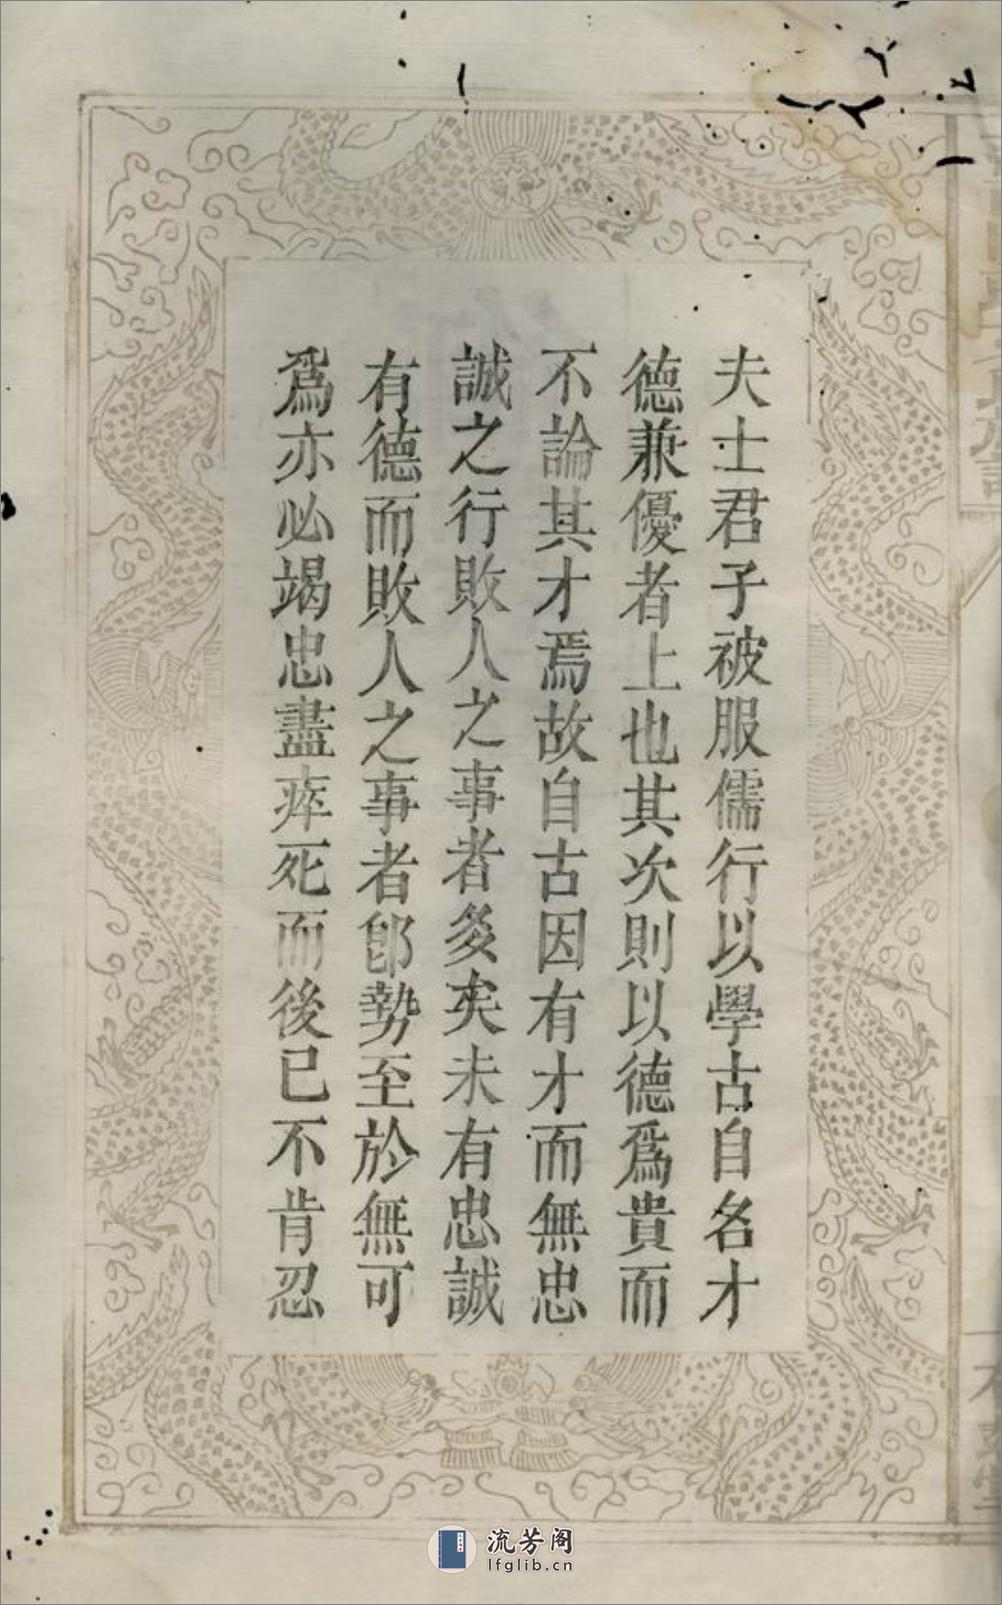 夫士君子被服儒行以學古自名才
德兼優者上也其次則以德爲貴而
不論其才焉故自古因有才而無忠
誠之行敗人之事者多矣未有忠誠
有德而敗人之事者卽勢至於無可
爲亦必竭忠盡瘁死而後已不肯忍
流芳阁
lfglib.cn